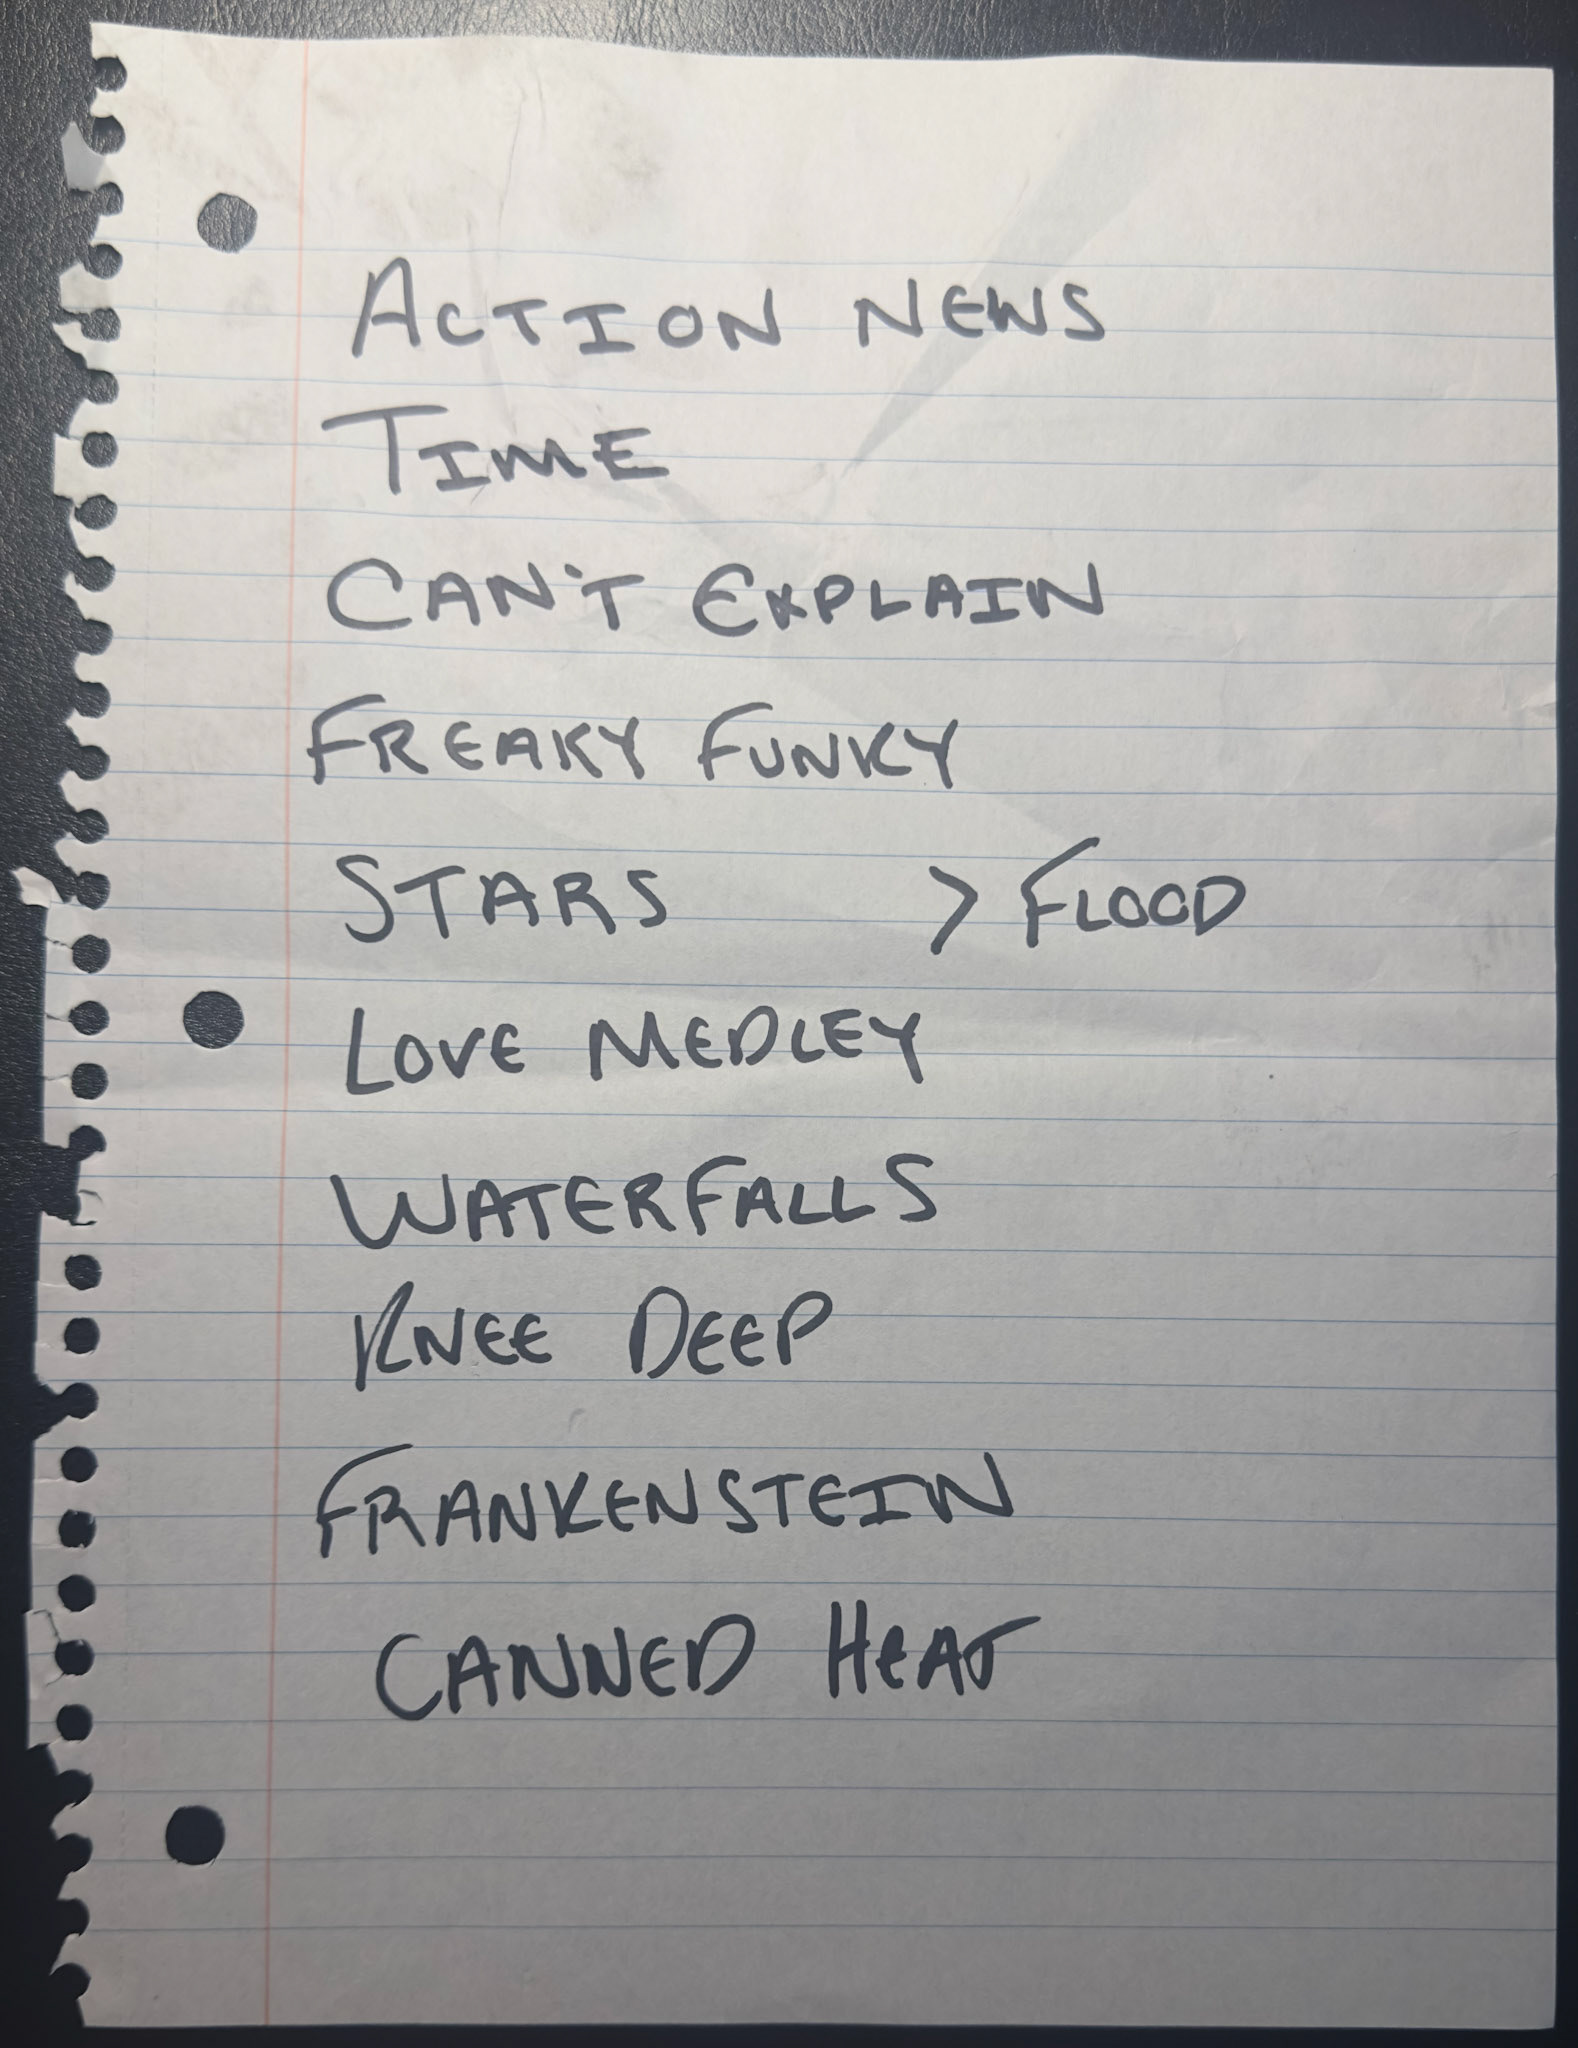 ACTION NEWS
TIME
CAN'T EXPLAIN
FREAKY FUNKY
STARS > FLOOD
LOVE MEDLEY
WATERFALLS
KNEE DEEP
FRANKENSTEIN
CANNED HEAT